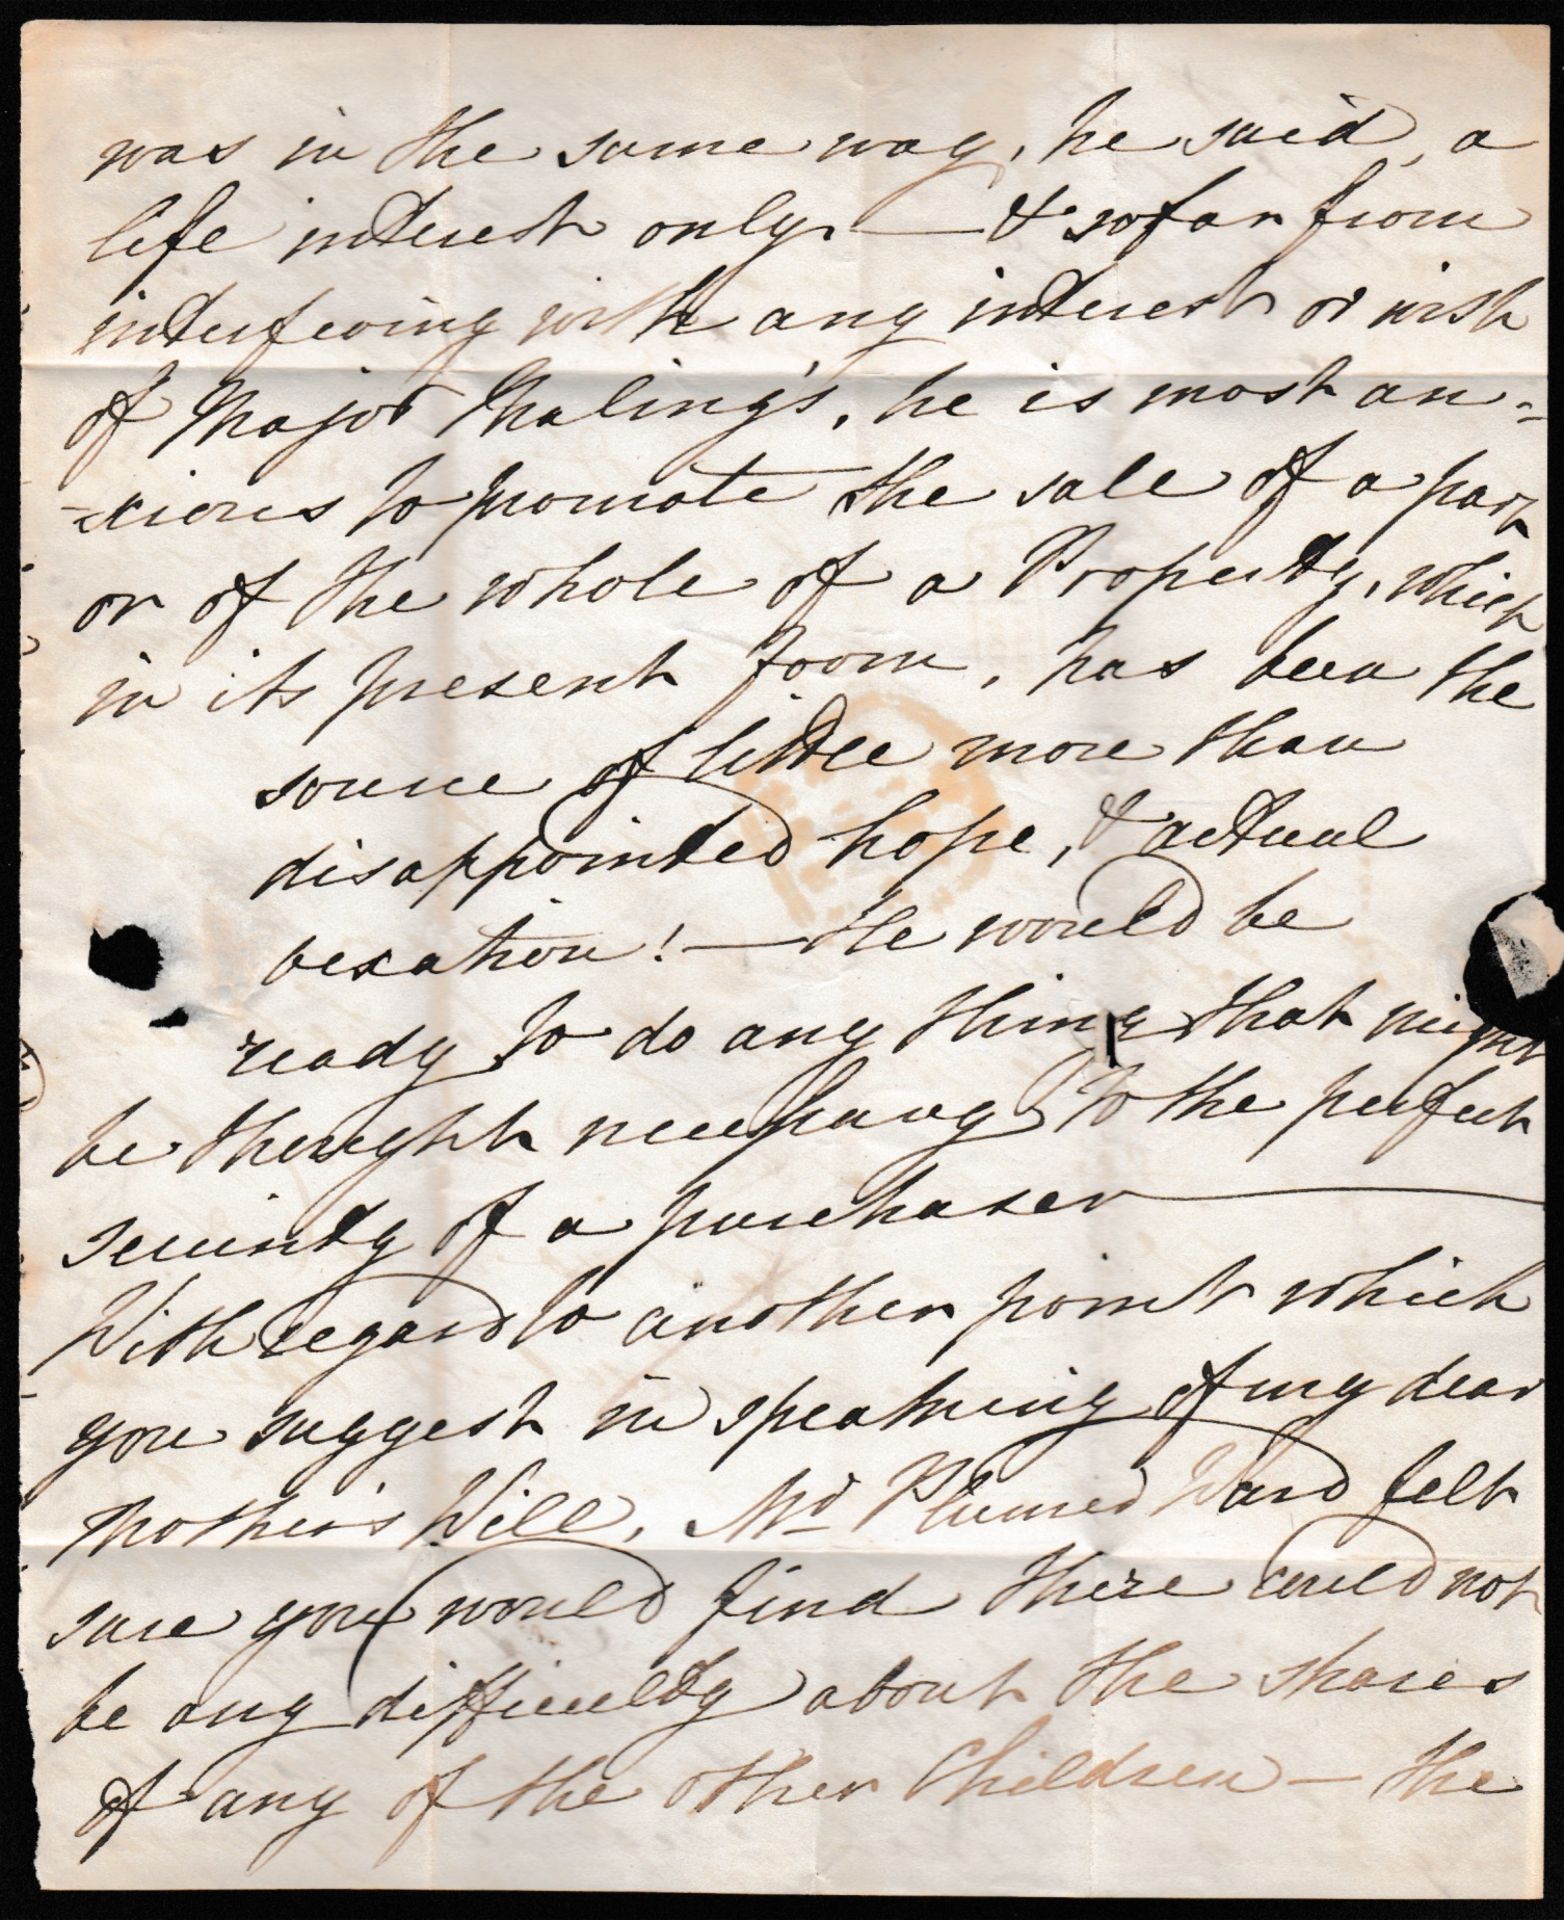 was in the same way, he said, a
life interest only — & so far from
interfering with any interest or wish
of Major Maling's, he is most an=
=xious to promote the sale of a part
or of the whole of a Property, which
in its present form, has been the
source of little more than
disappointed hope, & actual
vexation! — He would be
ready to do any thing that might
be thought necessary to the perfect
security of a purchaser —
With regard to another point which
you suggest in speaking of my dear
Mother's Will, Mr Plumer Ward felt
sure you would find there could not
be any difficulty about the shares
of any of the other Children — the